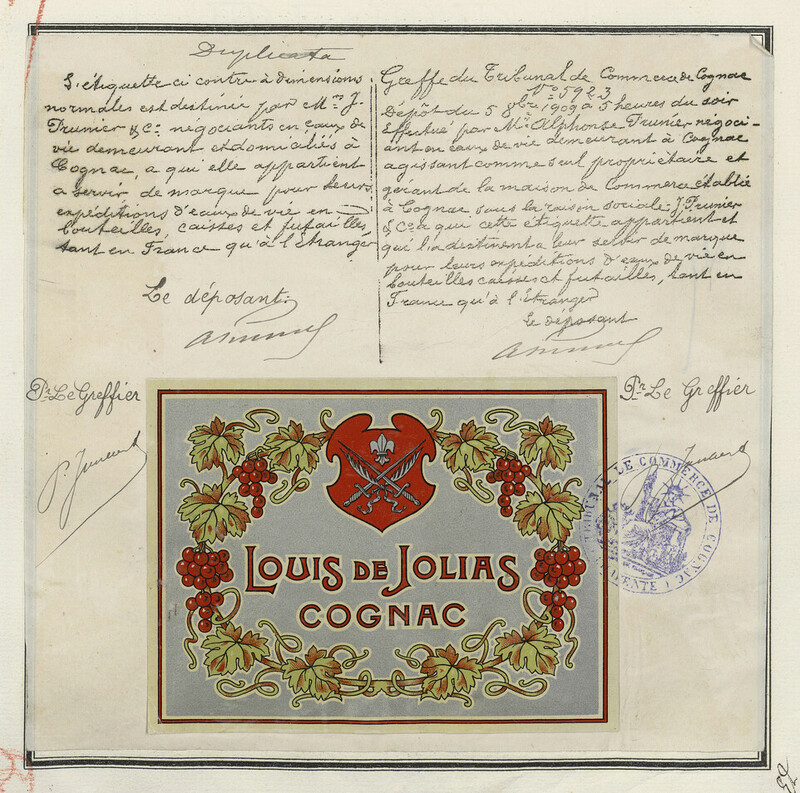 Duplicata
L'étiquette ci contre à dimensions
normales est destinée par Mrs J.
Prunier & Co négociants en eaux de
vie demeurant et domiciliés à
Cognac, a qui elle appartient
a servir de marque pour leurs
expéditions d'eaux de vie en
bouteilles, caisses et futailles,
tant en France qu'à l'Etranger
Le déposant:
Greffe du Tribunal de Commerce de Cognac
No 5923
Dépôt du 5 8bre 1909 à 5 heures du soir
Effectué par Mr Alphonse Prunier négoci-
ant en eaux de vie demeurant à Cognac
agissant comme seul propriétaire et
gérant de la maison de Commerce établie
à Cognac sous la raison sociale J. Prunier
& Co a qui cette étiquette appartient et
qui l'a destinent a leur servir de marque
pour leurs expéditions d'eaux de vie en
bouteilles caisses et futailles, tant en
France qu'à l'Etranger
Le déposant
Pr Le Greffier
Pr Le Greffier
LOUIS DE JOLIAS
COGNAC
TRIBUNAL DE COMMERCE DE COGNAC